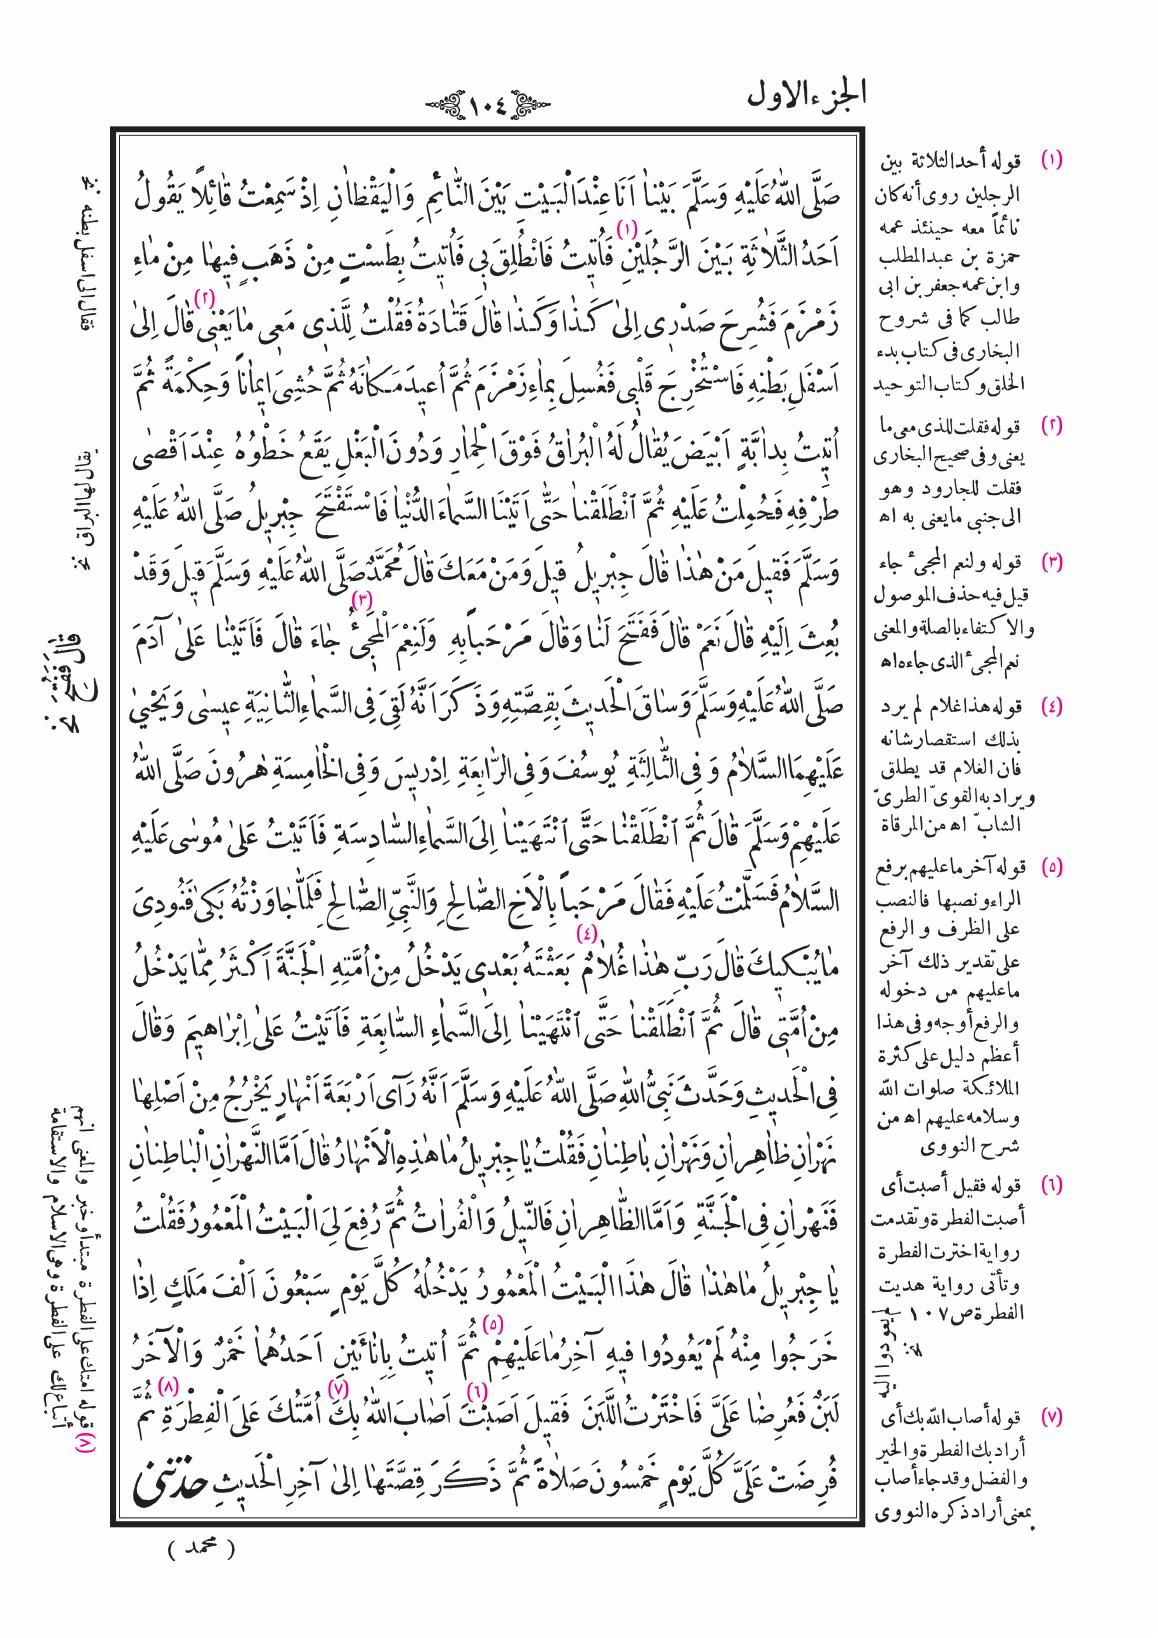 الجزء الاول
١٠٤
صَلَّى اللّٰهُ عَلَيْهِ وَسَلَّمَ بَيْنَا اَنَا عِنْدَ الْبَيْتِ بَيْنَ النَّائِمِ وَالْيَقْظَانِ اِذْ سَمِعْتُ قَائِلاً يَقُولُ
اَحَدُ الثَّلَاثَةِ بَيْنَ الرَّجُلَيْنِ (١) فَاُتِيتُ فَانْطُلِقَ بِى فَاُتِيتُ بِطَسْتٍ مِنْ ذَهَبٍ فِيهَا مِنْ مَاءِ
زَمْزَمَ فَشُرِحَ صَدْرِى اِلىٰ كَذَا وَكَذَا قَالَ قَتَادَةُ فَقُلْتُ لِلَّذِى مَعِى مَا يَعْنِى (٢) قَالَ اِلىٰ
اَسْفَلِ بَطْنِهِ فَاسْتُخْرِجَ قَلْبِى فَغُسِلَ بِمَاءِ زَمْزَمَ ثُمَّ اُعِيدَ مَكَانَهُ ثُمَّ حُشِىَ اِيمَاناً وَحِكْمَةً ثُمَّ
اُتِيتُ بِدَابَّةٍ اَبْيَضَ يُقَالُ لَهُ الْبُرَاقُ فَوْقَ الْحِمَارِ وَدُونَ الْبَغْلِ يَقَعُ خَطْوُهُ عِنْدَ اَقْصٰى
طَرْفِهِ فَحُمِلْتُ عَلَيْهِ ثُمَّ انْطَلَقْنَا حَتّٰى اَتَيْنَا السَّمَاءَ الدُّنْيَا فَاسْتَفْتَحَ جِبْرِيلُ صَلَّى اللّٰهُ عَلَيْهِ
وَسَلَّمَ فَقِيلَ مَنْ هٰذَا قَالَ جِبْرِيلُ قِيلَ وَمَنْ مَعَكَ قَالَ مُحَمَّدٌ صَلَّى اللّٰهُ عَلَيْهِ وَسَلَّمَ قِيلَ وَقَدْ
بُعِثَ اِلَيْهِ قَالَ نَعَمْ قَالَ فَفَتَحَ لَنَا وَقَالَ مَرْحَباً بِهِ وَلَنِعْمَ الْمَجِىءُ (٣) جَاءَ قَالَ فَاَتَيْنَا عَلىٰ آدَمَ
صَلَّى اللّٰهُ عَلَيْهِ وَسَلَّمَ وَسَاقَ الْحَدِيثَ بِقِصَّتِهِ وَذَكَرَ اَنَّهُ لَقِىَ فِى السَّمَاءِ الثَّانِيَةِ عِيسٰى وَيَحْيٰى
عَلَيْهِمَا السَّلَامُ وَفِى الثَّالِثَةِ يُوسُفَ وَفِى الرَّابِعَةِ اِدْرِيسَ وَفِى الْخَامِسَةِ هٰرُونَ صَلَّى اللّٰهُ
عَلَيْهِمْ وَسَلَّمَ قَالَ ثُمَّ انْطَلَقْنَا حَتَّى انْتَهَيْنَا اِلَى السَّمَاءِ السَّادِسَةِ فَاَتَيْتُ عَلىٰ مُوسٰى عَلَيْهِ
السَّلَامُ فَسَلَّمْتُ عَلَيْهِ فَقَالَ مَرْحَباً بِالْاَخِ الصَّالِحِ وَالنَّبِىِّ الصَّالِحِ فَلَمَّا جَاوَزْتُهُ بَكىٰ فَنُودِىَ
مَا يُبْكِيكَ قَالَ رَبِّ هٰذَا غُلَامٌ (٤) بَعَثْتَهُ بَعْدِى يَدْخُلُ مِنْ اُمَّتِهِ الْجَنَّةَ اَكْثَرُ مِمَّا يَدْخُلُ
مِنْ اُمَّتِى قَالَ ثُمَّ انْطَلَقْنَا حَتَّى انْتَهَيْنَا اِلَى السَّمَاءِ السَّابِعَةِ فَاَتَيْتُ عَلىٰ اِبْرَاهِيمَ وَقَالَ
فِى الْحَدِيثِ وَحَدَّثَ نَبِىُّ اللّٰهِ صَلَّى اللّٰهُ عَلَيْهِ وَسَلَّمَ اَنَّهُ رَآى اَرْبَعَةَ اَنْهَارٍ يَخْرُجُ مِنْ اَصْلِهَا
نَهْرَانِ ظَاهِرَانِ وَنَهْرَانِ بَاطِنَانِ فَقُلْتُ يَا جِبْرِيلُ مَا هٰذِهِ الْاَنْهَارُ قَالَ اَمَّا النَّهْرَانِ الْبَاطِنَانِ
فَنَهْرَانِ فِى الْجَنَّةِ وَاَمَّا الظَّاهِرَانِ فَالنِّيلُ وَالْفُرَاتُ ثُمَّ رُفِعَ لِىَ الْبَيْتُ الْمَعْمُورُ فَقُلْتُ
يَا جِبْرِيلُ مَا هٰذَا قَالَ هٰذَا الْبَيْتُ الْمَعْمُورُ يَدْخُلُهُ كُلَّ يَوْمٍ سَبْعُونَ اَلْفَ مَلَكٍ اِذَا
خَرَجُوا مِنْهُ لَمْ يَعُودُوا فِيهِ آخِرُ مَا عَلَيْهِمْ (٥) ثُمَّ اُتِيتُ بِاِنَائَيْنِ اَحَدُهُمَا خَمْرٌ وَالْآخَرُ
لَبَنٌ فَعُرِضَا عَلَىَّ فَاخْتَرْتُ اللَّبَنَ فَقِيلَ اَصَبْتَ (٦) اَصَابَ اللّٰهُ بِكَ (٧) اُمَّتُكَ عَلَى الْفِطْرَةِ (٨) ثُمَّ
فُرِضَتْ عَلَىَّ كُلَّ يَوْمٍ خَمْسُونَ صَلَاةً ثُمَّ ذَكَرَ قِصَّتَهَا اِلىٰ آخِرِ الْحَدِيثِ حدثنى
( محمد )
(١) قوله أحد الثلاثة بين
الرجلين روى أنه كان
نائماً معه حينئذ عمه
حمزة بن عبد المطلب
وابن عمه جعفر بن ابى
طالب كما فى شروح
البخارى فى كتاب بدء
الخلق وكتاب التوحيد
(٢) قوله فقلت للذى معى ما
يعنى وفى صحيح البخارى
فقلت للجارود وهو
الى جنبى ما يعنى به اه
(٣) قوله ولنعم المجىء جاء
قيل فيه حذف الموصول
والاكتفاء بالصلة والمعنى
نعم المجىء الذى جاءه اه
(٤) قوله هذا غلام لم يرد
بذلك استقصار شانه
فان الغلام قد يطلق
ويراد به القوىّ الطرىّ
الشابّ اه من المرقاة
(٥) قوله آخر ما عليهم برفع
الراء ونصبها فالنصب
على الظرف و الرفع
على تقدير ذلك آخر
ما عليهم من دخوله
والرفع أوجه وفى هذا
أعظم دليل على كثرة
الملائكة صلوات الله
وسلامه عليهم اه من
شرح النووى
(٦) قوله فقيل أصبت أى
أصبت الفطرة وتقدمت
رواية اخترت الفطرة
وتأتى رواية هديت
الفطرة ص ١٠٧
(٧) قوله أصاب الله بك أى
أراد بك الفطرة والخير
والفضل وقد جاء أصاب
بمعنى أراد ذكره النووى
لم يعودوا اليه
نخ
فقال الى اسفل بطنه نخ
(٨) قوله امتك على الفطرة مبتدأ وخبر والمعنى انهم
أتباع لك على الفطرة وهى الاسلام والاستقامة